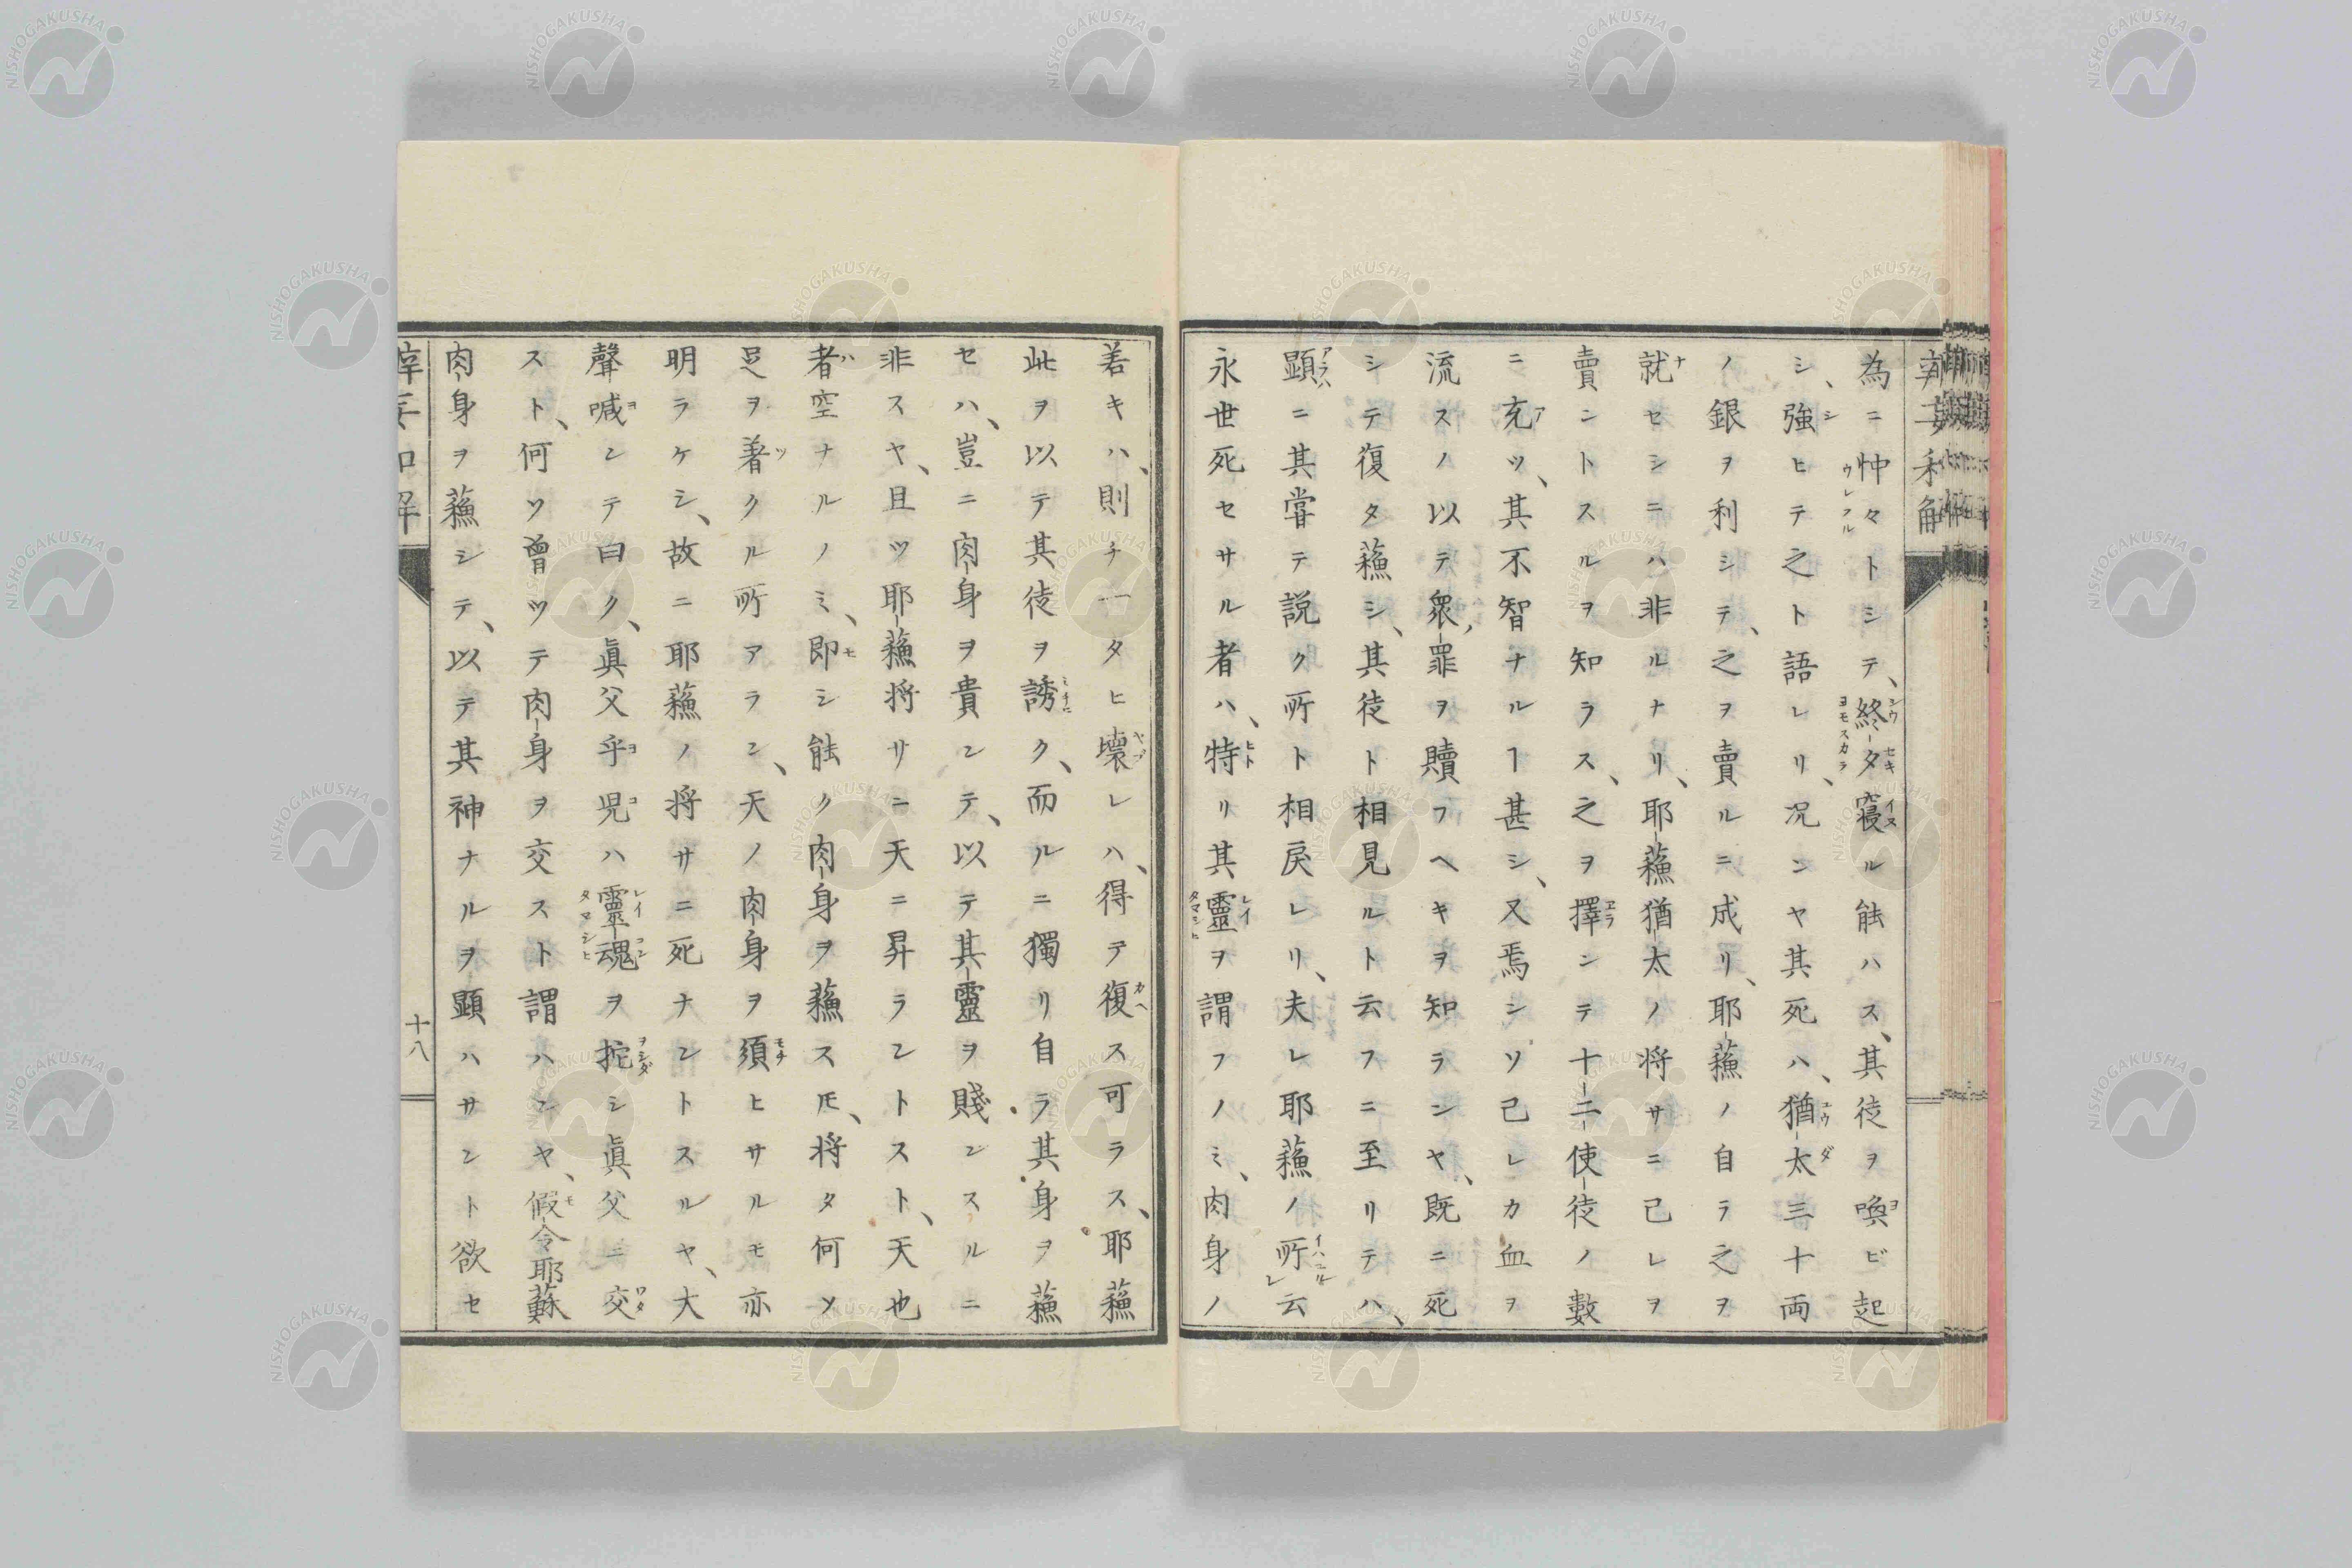 為ニ忡々トシテ、終夕寝ル能ハス、其徒ヲ喚ビ起
シ、強ヒテ之ト語レリ、况ンヤ其死ハ、猶太三十両
ノ銀ヲ利シテ、之ヲ賣ルニ成リ、耶蘓ノ自ラ之ヲ
就セシニハ非ルナリ、耶蘓猶太ノ将サニ己レヲ
賣ントスルヲ知ラス、之ヲ擇ンテ十二使徒ノ數
ニ充ツ、其不智ナルヿ甚シ、又焉ンソ己レカ血ヲ
流スノ以テ衆罪ヲ贖フヘキヲ知ランヤ、既ニ死
シテ復タ蘓シ、其徒ト相見ルト云フニ至リテハ、
顕ニ其甞テ説ク所ト相戻レリ、夫レ耶蘓ノ所云
永世死セサル者ハ、特リ其靈ヲ謂フノミ、肉身ノ
若キハ、則チ一タヒ壊レハ、得テ復ス可ラス、耶蘓
此ヲ以テ其徒ヲ誘ク、而ルニ獨リ自ラ其身ヲ蘓
セハ、豈ニ肉身ヲ貴ンテ、以テ其靈ヲ賤ンスルニ
非スヤ、且ツ耶蘓将サニ天ニ昇ラントスト、天也
者空ナルノミ、即シ能ク肉身ヲ蘓スモ、将タ何ソ
足ヲ著クル所アラン、天ノ肉身ヲ須ヒサルモ亦
明ラケシ、故ニ耶蘓ノ将サニ死ナントスルヤ、大
聲喊ンテ曰ク、眞父乎児ハ靈魂ヲ拕シ眞父ニ交
スト、何ツ曾ツテ肉身ヲ交スト謂ハンヤ、假令耶蘇
肉身ヲ蘓シテ、以テ其神ナルヲ顕ハサント欲セ
十八